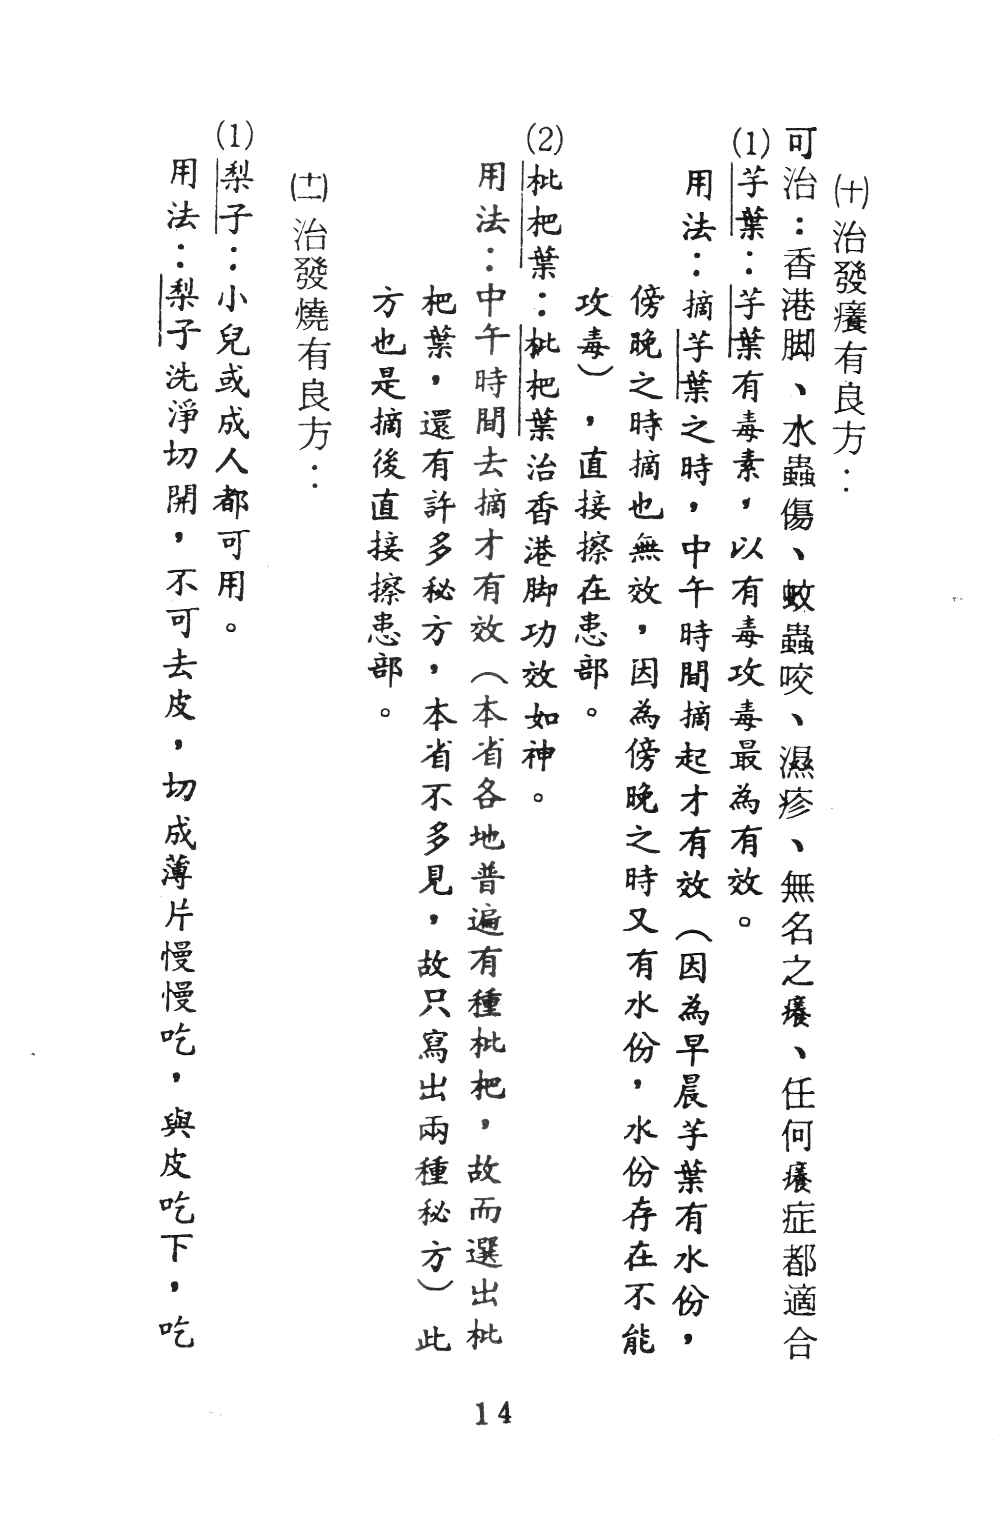 ㈩治發癢有良方：
可治：香港脚、水蟲傷、蚊蟲咬、濕疹、無名之癢、任何癢症都適合
(1)芋葉：芋葉有毒素，以有毒攻毒最為有效。
用法：摘芋葉之時，中午時間摘起才有效（因為早晨芋葉有水份，
傍晚之時摘也無效，因為傍晚之時又有水份，水份存在不能
攻毒），直接擦在患部。
(2)枇杷葉：枇杷葉治香港脚功效如神。
用法：中午時間去摘才有效（本省各地普遍有種枇杷，故而選出枇
杷葉，還有許多秘方，本省不多見，故只寫出兩種秘方）此
方也是摘後直接擦患部。
(十一)治發燒有良方：
(1)梨子：小兒或成人都可用。
用法：梨子洗淨切開，不可去皮，切成薄片慢慢吃，與皮吃下，吃
14